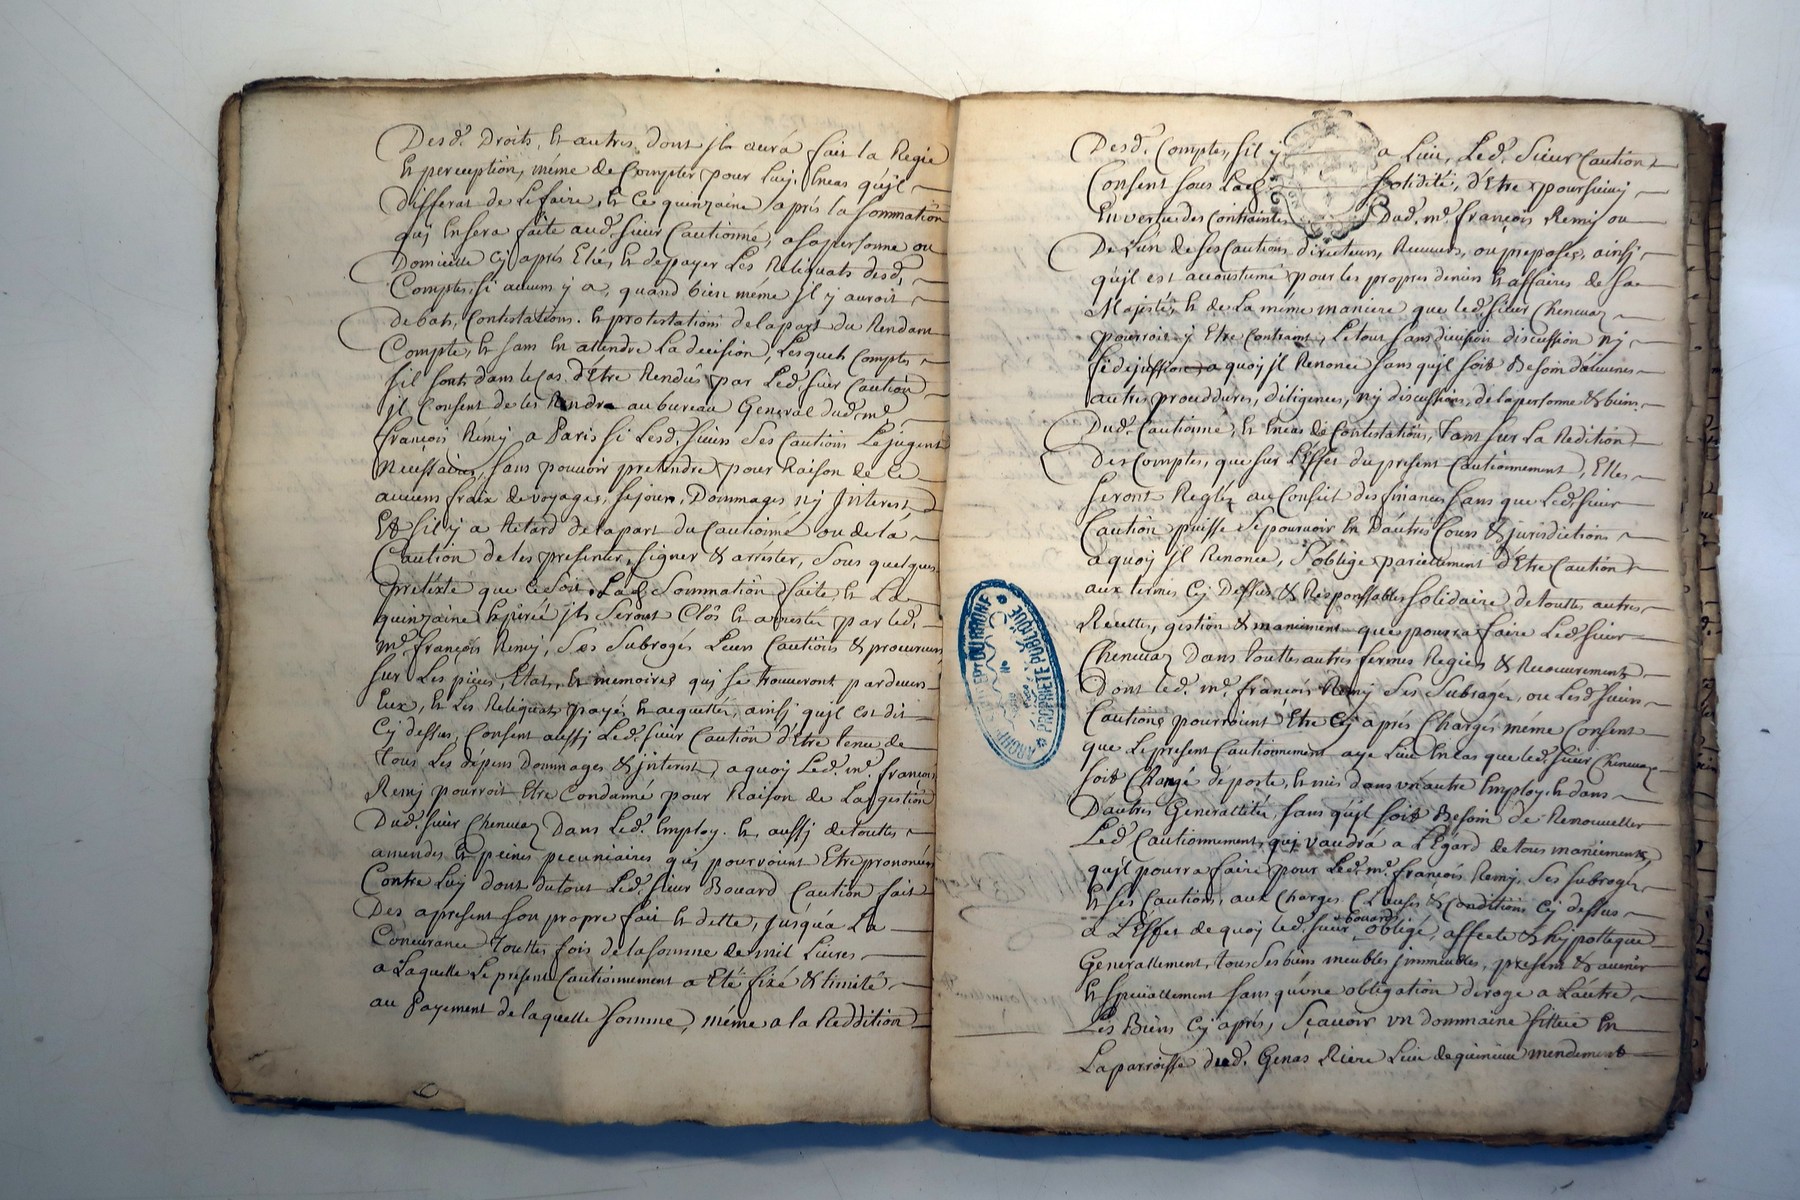 Desd. Droits, et autres dont jl aura fait la Regie
et perception, même de Compter pour Luy, encas qu'jl
differat de Le faire, et ce quinzaine aprés la sommation
quj ensera faite aud. sieur Cautionné, a sa personne ou
Domicille cy aprés Elû, et de payer Les Reliquats desd.
Comptes, si aucun y a, quand bien même jl y auroit
debats, Contestations. et protestations de la part du Rendant
Compte, et sans en attendre la decision, Lesquels Comptes
s'il sont dans le cas d'Etre Rendûs par Led. sieur Caution
jl Consent de les Rendre au bureau General dud. me.
françois Rémy a Paris si Lesd. sieurs Ses Cautions Le jugent
Necessaires, sans pouvoir pretendre pour Raison de ce
aucuns fraix de voyages, sejour, Dommages ny Interest
Et s'il y a Retard de la part du Cautionné ou de la
Caution de les presenter, signer & arrêster, Sous quelques
pretexte que ce soit, Lad. Sommation faite et La
quinzaine expirée jls Seront Clôs et arrestés par led.
me. françois Remy, Ses Subrogés Leurs Cautions & procureurs
sur Les pieces, Etats, et memoires quj se trouveront pardevers
Eux, et Les Reliquats payés et acquettés, ainsj qu'jl est dit
Cy dessus, Consent aussj Led. sieur Caution d'Etre tenu de
tous Les dépens Dommages & jnterest, a quoy Led. me. françois
Remy pourroit Etre Condanné pour Raison de La gestion
Dud. sieur Chenevaz Dans Led. Employ. et aussj de touttes
amendes et peines pecuniaires quj pourroient Etre prononcées
Contre Luy dont du tout Led. sieur Bouard Caution fait
Des apresent son propre fait et dette, jusqu'a La
Concurance touttes fois de la somme de mil Livres
a Laquelle Le present Cautionnement a Eté fixé & limité
au Payement de laquelle somme, même a la Reddition
Desd. Comptes, s'il y a Lieu, Led. Sieur Caution
Consent sous Lad. solidité, d'Etre poursuivy
en vertu des Contraintes Dud. me. françois Remy ou
De L'un de ses Cautions directeurs, Receveurs, ou preposés, ainsj
qu'jl est accoustumé pour les propres deniers et affaires de sa
Majesté, et de La même maniere que led. sieur Chenevaz
pourroit y Etre Contraint, Le tout sans division discussion ny
fidejussion a quoy jl Renonce sans qu'jl soit Besoin d'aucunes
autres procedures, diligences, ny discussions, de la personne & biens
Dud. Cautionné, et encas de Contestations, tant sur La Redition
Des Comptes, que sur L'Effet du present Cautionnement, Elles
seront Reglés au Conseil des finances sans que Led. sieur
Caution puisse Se pourvoir en d'autres Cours & jurisdictions
a quoy jl Renonce, S'oblige pareillement d'Etre Caution
aux termes Cy Dessus & Responssables solidaire de touttes autres
Recettes, gestion & maniement que pourra faire Led. sieur
Chenevaz Dans touttes autres fermes Regies & Recouvrements
Dont led. me. françois Remy Ses Subrogés, ou Lesd. sieurs
Cautions pourroient Etre Cy aprés Chargés même Consent
que Le present Cautionnement aye Lieu encas que led. sieur Chenevaz
soit Changé de poste, et mis dans un autre Employ, et dans
D'autres Generallités, sans qu'jl soit Besoin de Renouveller
Led. Cautionnement, quj vaudra a L'Egard de tous maniements
qu'jl pourra faire pour Led. me. françois Remy, Ses subrogés
et ses Cautions, aux Charges Clauses & Conditions Cy dessus
a L'Effet de quoy led. sieur Bouard oblige, affecte & hypotteque
Generallement, tous Ses biens meubles jmmeubles, presents & avenir
et speciallement sans qu'une obligation déroge a L'autre
Les Biens Cy aprés, Sçavoir un dommaine sittué en
La parroisse dud. Genas Riere Lieu de mendement
ARCHIVES DEP.T DU RHONE
PROPRIÉTÉ PUBLIQUE